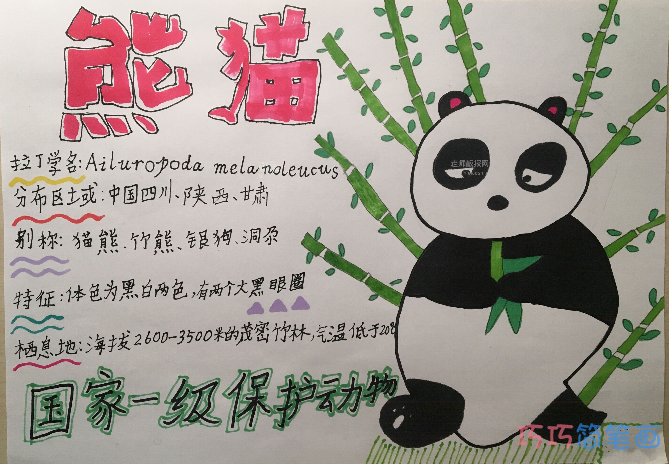 熊猫
拉丁学名:Ailuropoda melanoleucus
分布区域:中国四川、陕西、甘肃
别称:猫熊、竹熊、银狗、洞尕
特征:体色为黑白两色,有两个大黑眼圈
栖息地:海拔2600-3500米的茂密竹林,气温低于20℃
国家一级保护动物
巧巧简笔画